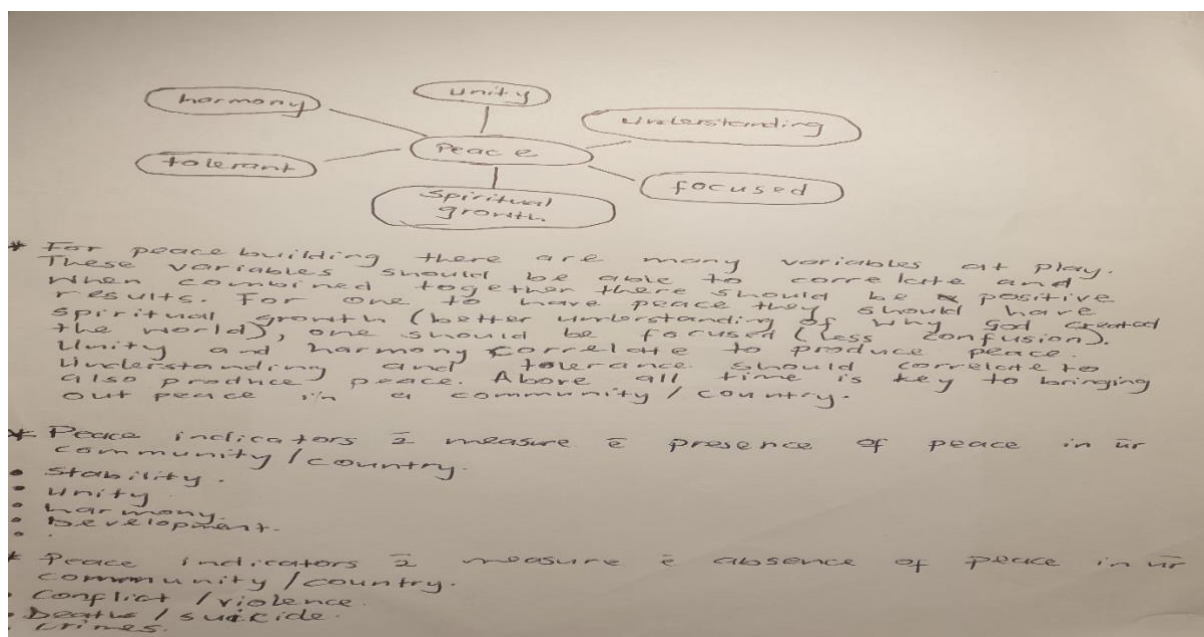 harmony
unity
understanding
Peace
tolerant
focused
spiritual
growth
* For peace building there are many variables at play.
These variables should be able to correlate and
when combined together there should be positive
results. For one to have peace they should have
spiritual growth (better understanding of why God created
the world), one should be focused (less confusion).
Unity and harmony correlate to produce peace.
Understanding and tolerance should correlate to
also produce peace. Above all time is key to bringing
out peace in a community / country.
* Peace indicators 2̄ measure ē presence of peace in ūr
community / country.
• Stability.
• Unity
• harmony.
• Development.
•
* Peace indicators 2̄ measure ē absence of peace in ūr
community / country.
• Conflict / violence.
• Deaths / suicide.
• Crimes.